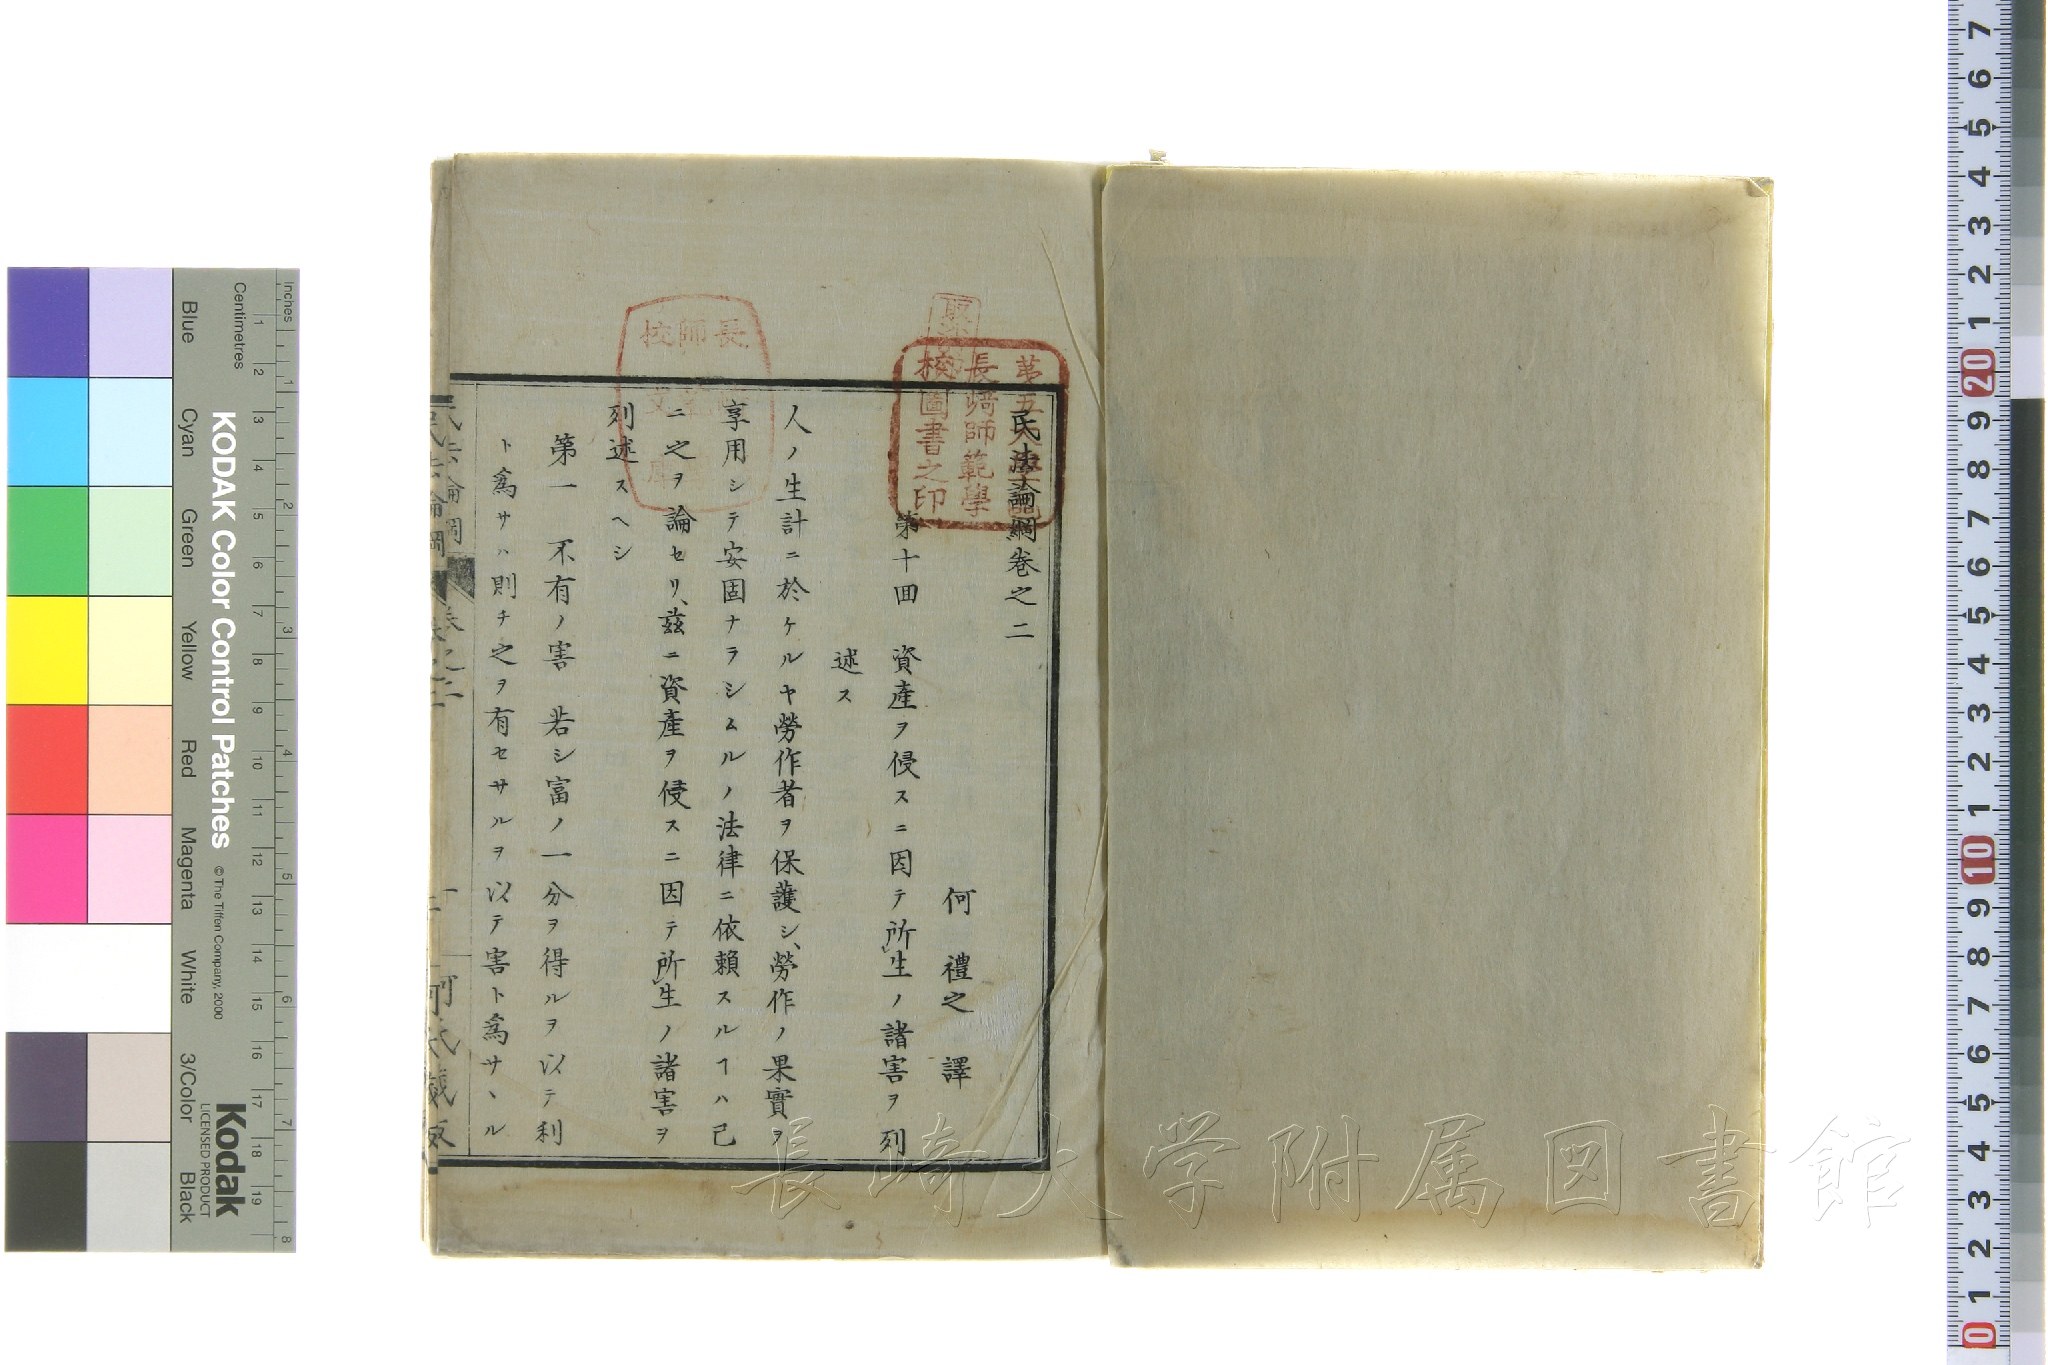 民法論綱卷之二
何禮之 譯
第十回 資產ヲ侵スニ因テ所生ノ諸害ヲ列
述ス
人ノ生計ニ於ケルヤ勞作者ヲ保護シ、勞作ノ果實ヲ
享用シテ安固ナラシムルノ法律ニ依賴スルヿハ已
ニ之ヲ論セリ、茲ニ資產ヲ侵スニ因テ所生ノ諸害ヲ
列述スヘシ
第一 不有ノ害 若シ富ノ一分ヲ得ルヲ以テ利
ト爲サハ則チ之ヲ有セサルヲ以テ害ト爲サヽル
民法論綱 卷之二 一 何氏藏板
長崎師範學
校圖書之印
長崎大学附属図書館
KODAK Color Control Patches
© The Tiffen Company, 2000
Kodak
LICENSED PRODUCT
Inches
Centimetres
Blue
Cyan
Green
Yellow
Red
Magenta
White
3/Color
Black
1 2 3 4 5 6 7 8
1 2 3 4 5 6 7 8 9 10 11 12 13 14 15 16 17 18 19
7 6 5 4 3 2 1 20 9 8 7 6 5 4 3 2 1 10 9 8 7 6 5 4 3 2 1 0